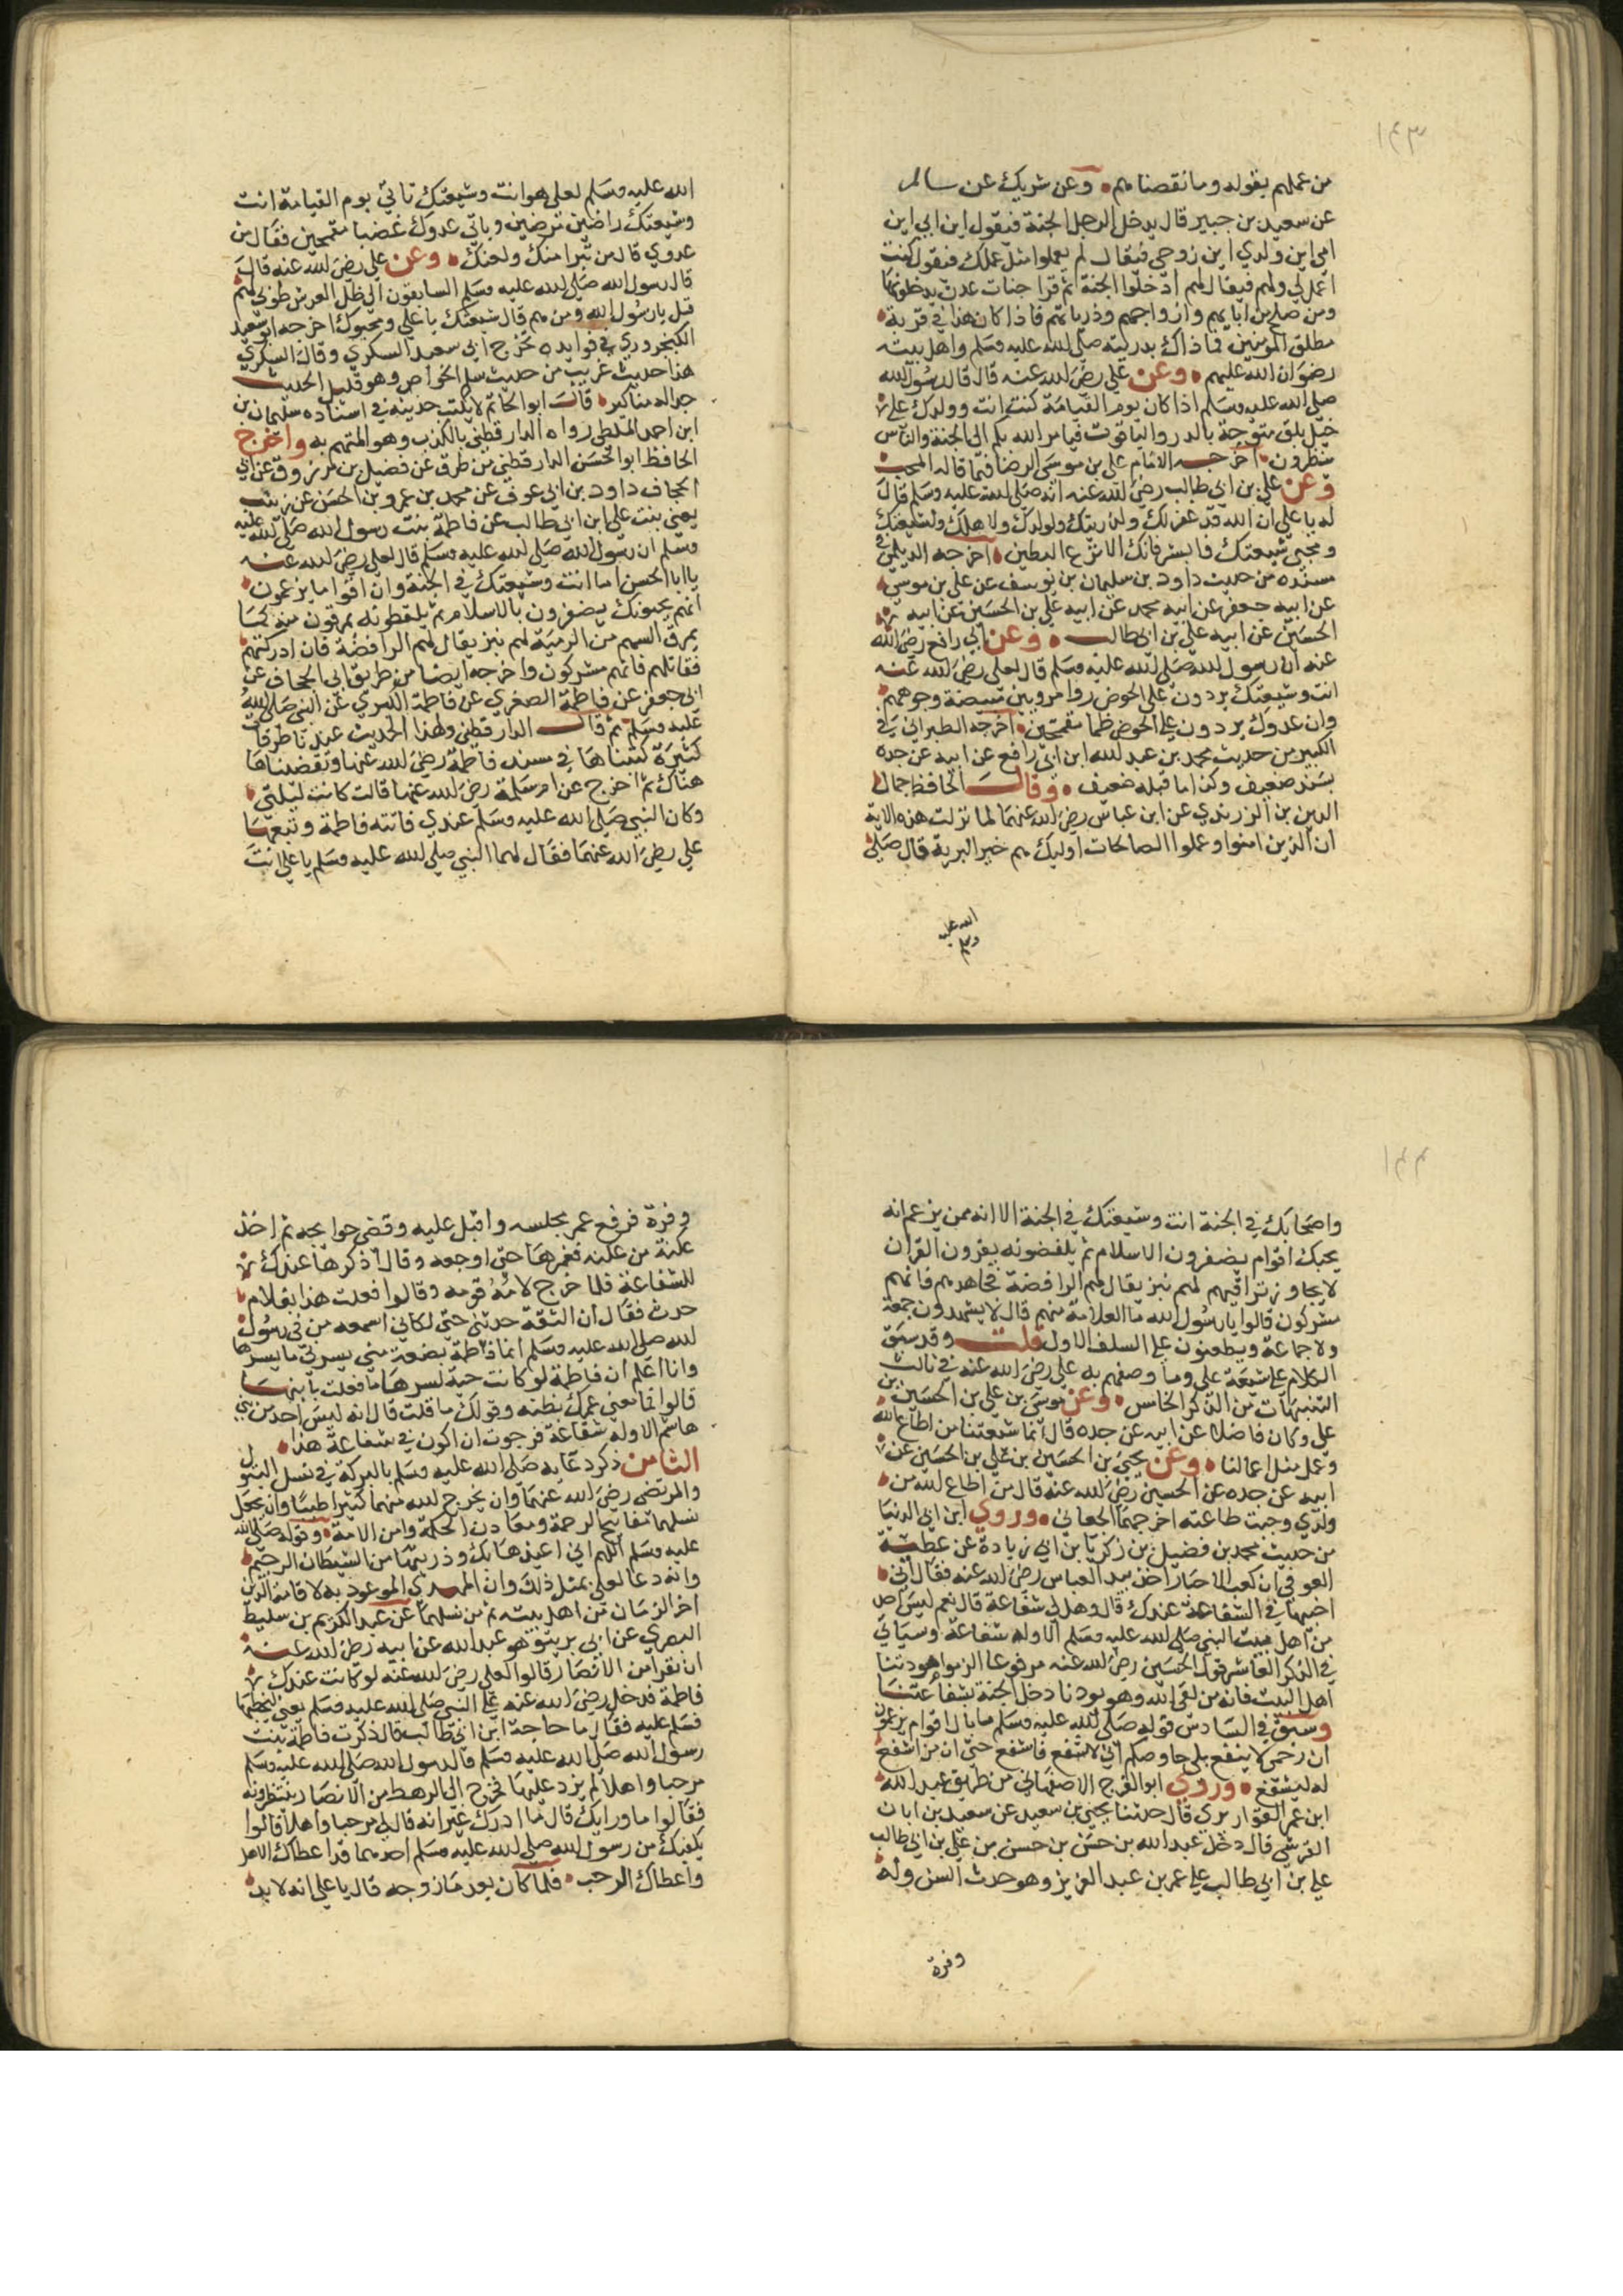 ١٤٣
من عملهم بقوله وما نقصناهم وعن شريك عن سالم
عن سعيد بن جبير قال يدخل الرجل الجنة فيقول اين ابي اين
امي اين ولدي اين زوجي فيقال لم يعملوا مثل عملك فيقول كنت
اعمل لي ولهم فيقال لهم ادخلوا الجنة ثم قرا جنات عدن يدخلونها
ومن صلح من ابايهم وازواجهم وذرياتهم فاذا كان هذا في قربة
مطلق المومنين فما ذاك بذريته صلى الله عليه وسلم واهل بيته
رضوان الله عليهم وعن علي رضي الله عنه قال قال رسول الله
صلى الله عليه وسلم اذا كان يوم القيامة كنت انت وولدك على
خيل بلق متوجة بالدر والياقوت فيامر الله بكم الى الجنة والناس
ينظرون اخرجه الامام علي بن موسى الرضا فيما قاله المحب
وعن علي بن ابي طالب رضي الله عنه انه صلى الله عليه وسلم قال
له يا علي ان الله قد غفر لك ولذريتك ولولدك ولاهلك ولشيعتك
ومحبي شيعتك فابشر فانك الانزع البطين اخرجه الديلمي في
مسنده من حديث داود بن سليمان بن يوسف عن علي بن موسى
عن ابيه جعفر عن ابيه محمد عن ابيه علي بن الحسين عن ابيه
الحسين عن ابيه علي بن ابي طالب وعن ابي رافع رضي الله
عنه ان رسول الله صلى الله عليه وسلم قال لعلي رضي الله عنه
انت وشيعتك يردون على الحوض روا مرويين مبيضة وجوههم
وان عدوك يردون على الحوض ظما مقمحين اخرجه الطبراني في
الكبير من حديث محمد بن عبد الله ابن ابي رافع عن ابيه عن جده
بسند ضعيف وكذا ما قبله ضعيف وقال الحافظ جمال
الدين بن الزرندي عن ابن عباس رضي الله عنهما لما نزلت هذه الاية
ان الذين امنوا وعملوا الصالحات اوليك هم خير البرية قال صلى
الله عليه
وسلم
الله عليه وسلم لعلي هو انت وشيعتك تاتي يوم القيامة انت
وشيعتك راضين مرضيين وياتي عدوك غضبا مقمحين فقال من
عدوي قال من تبرا منك ولعنك وعن علي رضي الله عنه قال
قال رسول الله صلى الله عليه وسلم السابقون الى ظل العرش طوبى لهم
قيل يا رسول الله ومن هم قال شيعتك يا علي ومحبوك اخرجه ابو سعيد
الكنجرودي في فوايده تخرج ابي سعيد السكري وقال السكري
هذا حديث غريب من حديث سلم الخواص وهو قليل الحديث
جدا له مناكير قال ابو الحاتم لا يكتب حديثه في اسناده سليمان بن
ابن احمد الملطي رواه الدارقطني بالكذب وهو المتهم به واخرج
الحافظ ابو الحسن الدارقطني من طرق عن فضيل بن مرزوق عن ابي
الجحاف داود بن ابي عوف عن محمد بن عمرو بن الحسن عن زينب
يعني بنت علي ابن ابي طالب عن فاطمة بنت رسول الله صلى الله عليه
وسلم ان رسول الله صلى الله عليه وسلم قال لعلي رضي الله عنه
يا ابا الحسن اما انت وشيعتك في الجنة وان اقواما يزعمون
انهم يحبونك يضفزون بالاسلام ثم يلفظونه يمرقون منه كما
يمرق السهم من الرمية لهم نبز يقال لهم الرافضة فان ادركتهم
فقاتلهم فانهم مشركون واخرجه ايضا من طريق ابي الجحاف عن
ابي جعفر عن فاطمة الصغرى عن فاطمة الكبرى عن النبي صلى الله
عليه وسلم ثم قال الدارقطني ولهذا الحديث عندنا طرقات
كثيرة كتبناها في مسند فاطمة رضي الله عنها وتقضيناها
هناك ثم اخرج عن ام سلمة رضي الله عنها قالت كانت ليلتي
وكان النبي صلى الله عليه وسلم عندي فاتته فاطمة وتبعها
علي رضي الله عنهما فقال لهما النبي صلى الله عليه وسلم يا علي انت
١٤٤
واصحابك في الجنة انت وشيعتك في الجنة الا انه ممن يزعم انه
يحبك اقوام يضفزون الاسلام ثم يلفضونه يقرون القران
لا يجاوز تراقيهم لهم نبز يقال لهم الرافضة فجاهدهم فانهم
مشركون قالوا يا رسول الله ما العلامة منهم قال لا يشهدون جمعة
ولا جماعة ويطعنون على السلف الاول قلت وقد سبق
الكلام على شيعة علي وما وصفهم به علي رضي الله عنه في ثالث
التنبيهات من الذكر الخامس وعن موسى بن علي بن الحسين بن
علي وكان فاضلا عن ابيه عن جده قال انما شيعتنا من اطاع الله
وعمل مثل اعمالنا وعن يحيى بن الحسين بن علي بن الحسين عن
ابيه عن جده عن الحسين رضي الله عنه قال من اطاع الله من
ولدي وجبت طاعته اخرجهما الجعابي وروي ابن ابي الدنيا
من حديث محمد بن فضيل بن زكريا بن ابي زيادة عن عطية
العوفي ان كعب الاحبار اخذ بيد العباس رضي الله عنه فقال اني
اختبيها في الشفاعة عندك قال وهل لي شفاعة قال نعم ليس احد
من اهل بيت النبي صلى الله عليه وسلم الا وله شفاعة وسياتي
في الذكر العاشر قول الحسين رضي الله عنه مرفوعا الزموا مودتنا
اهل البيت فانه من لقي الله وهو يودنا دخل الجنة بشفاعتنا
وسبق في السادس قوله صلى الله عليه وسلم ما بال اقوام يزعمون
ان رحمي لا ينفع بلى حا وحكم اني لاشفع فاشفع حتى ان من اشفع
له ليشفع وروي ابو الفرج الاصفهاني من طريق عبد الله
ابن عمر القواريري قال حدثنا يحيى بن سعيد عن سعيد بن ابان
القرشي قال دخل عبد الله بن حسن بن حسن بن علي بن ابي طالب
علي بن ابي طالب على عمر بن عبد العزيز وهو حدث السن وله
وفرة
وفرة فرفع عمر مجلسه واقبل عليه وقضى حوايجه ثم اخذ
عكنة من عكنه فغمزها حتى اوجعه وقال اذكرها عندك
للشفاعة فلما خرج لامه قومه وقالوا فعلت هذا بغلام
حدث فقال ان الثقة حدثني حتى لكاني اسمعه من في رسول
الله صلى الله عليه وسلم انما فاطمة بضعة مني يسرني ما يسرها
وانا اعلم ان فاطمة لو كانت حية لسرها ما فعلت بابنها
قالوا فما معنى غمزك بطنه وقولك ما قلت قال انه ليس احد من بني
هاشم الا وله شفاعة فرجوت ان اكون في شفاعة هذا
الثامن ذكر دعايه صلى الله عليه وسلم بالبركة في نسل البتول
والمرتضى رضي الله عنهما وان يخرج الله منهما كثيرا طيبا وان يجعل
نسلهما مفاتيح الرحمة ومعادن الحكمة وامن الامة وقوله صلى الله
عليه وسلم اللهم اني اعيذها بك وذريتها من الشيطان الرجيم
وانه دعا لعلي بمثل ذلك وان المهدي الموعود به لاقامة الدين
اخر الزمان من اهل بيته ثم من نسلهما عن عبد الكريم بن سليط
البصري عن ابن بريدة هو عبد الله عن ابيه رضي الله عنه
ان نفرا من الانصار قالوا لعلي رضي الله عنه لو كانت عندك
فاطمة فدخل رضي الله عنه على النبي صلى الله عليه وسلم يعني ليخطبها
فسلم عليه فقال ما حاجة ابن ابي طالب قال ذكرت فاطمة بنت
رسول الله صلى الله عليه وسلم قال رسول الله صلى الله عليه وسلم
مرحبا واهلا لم يزد عليها فخرج الى الرهط من الانصار ينتظرونه
فقالوا ما ورايك قال ما ادرك غير انه قال لي مرحبا واهلا قالوا
يكفيك من رسول الله صلى الله عليه وسلم احدهما قد اعطاك الاهل
واعطاك الرحب فلما كان بعد ما زوجه قال يا علي انه لا بد